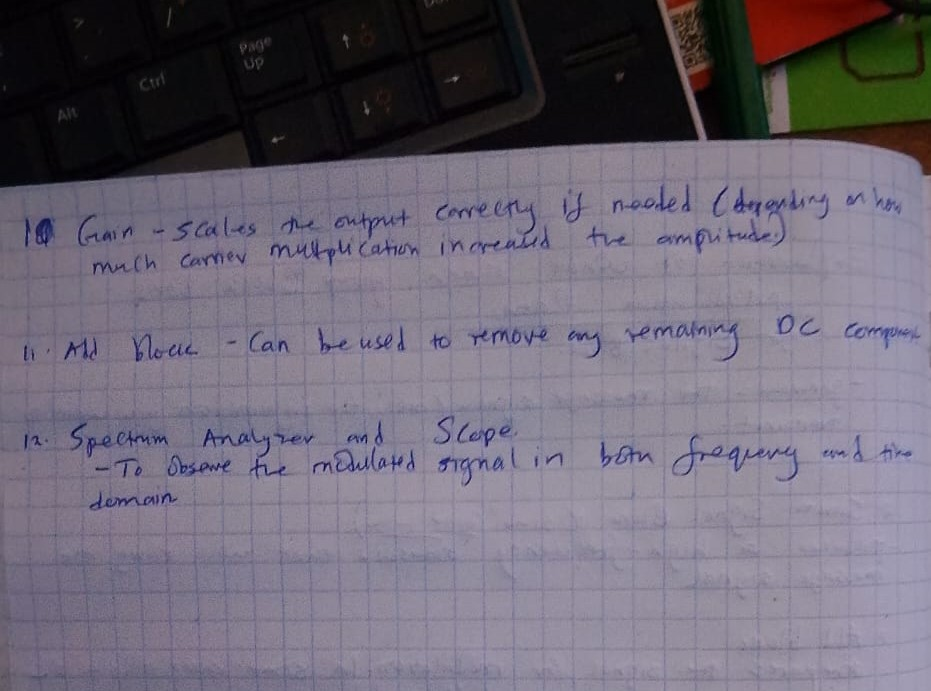 >
/
Page
Up
↑
Ctrl
Alt
←
↓
→
10 Gain - scales the output correctly if needed (depending on how
much carrier multiplication increased the amplitude)
11. Add Block - Can be used to remove any remaining DC component
12. Spectrum Analyzer and Scope.
- To Observe the modulated signal in both frequency and time
domain